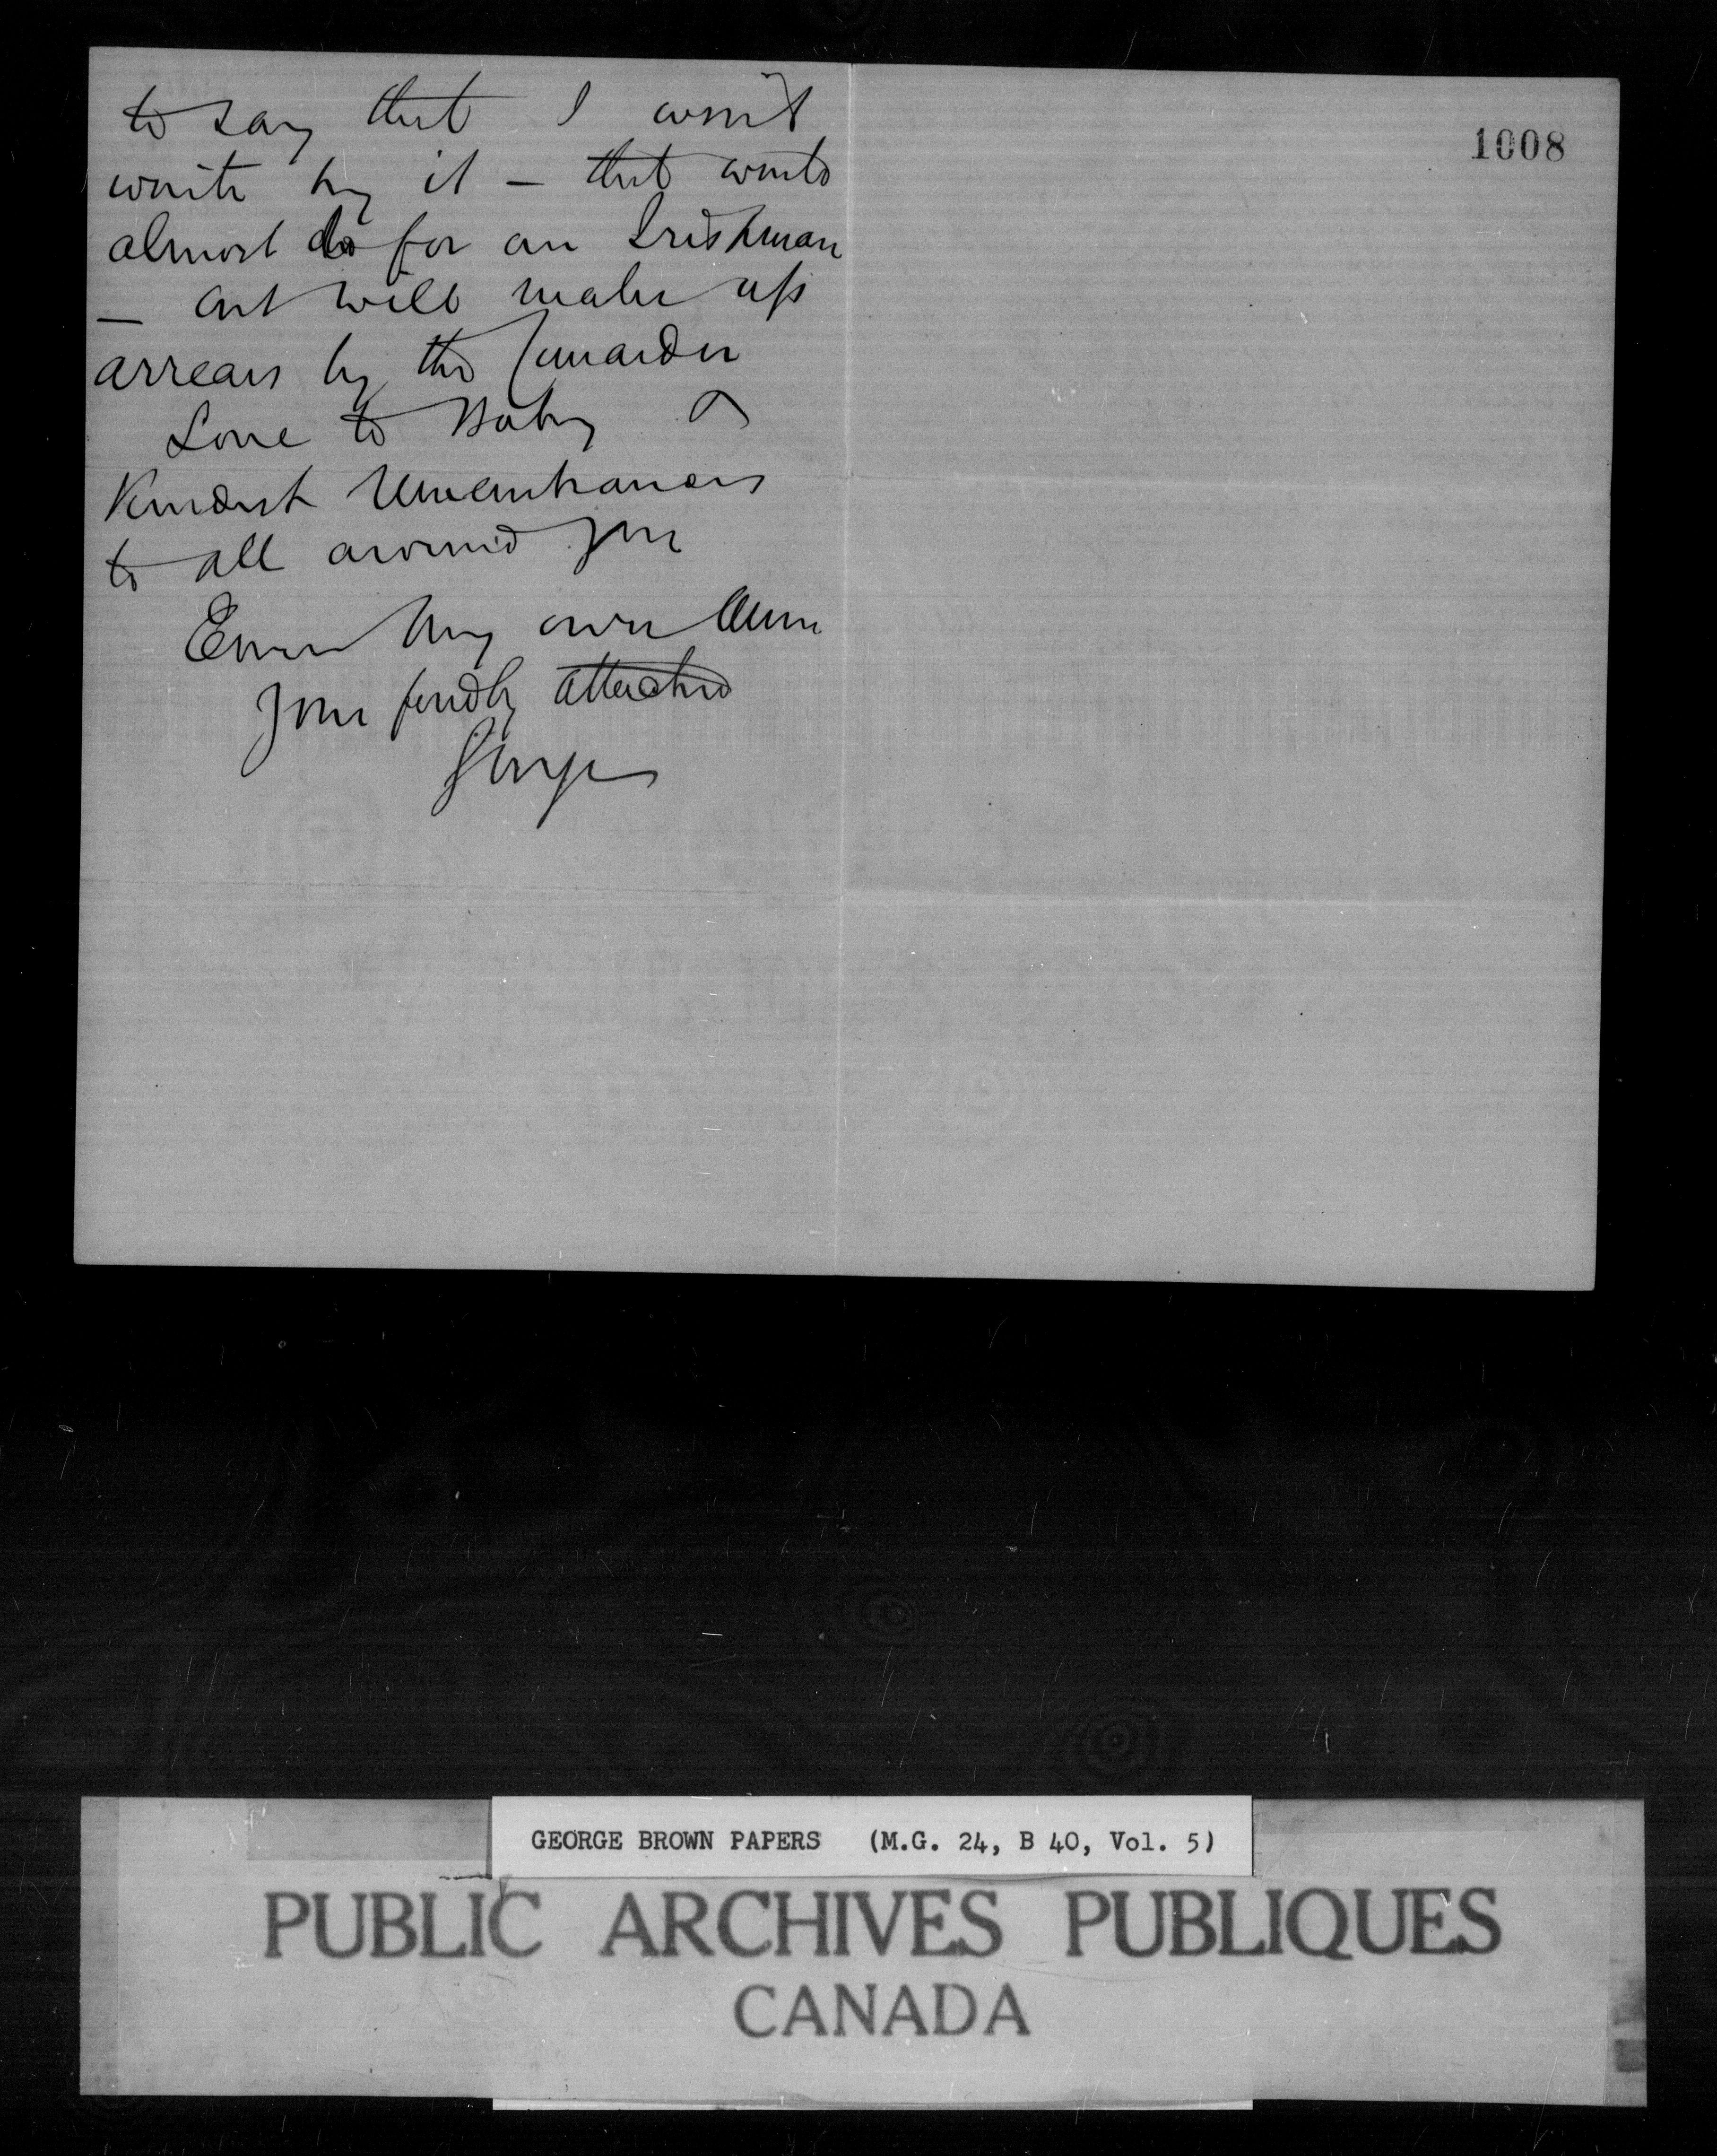 to say that I won't
write by it — that would
almost do for an Irishman
— but will make up
arrears by the Cunarder
Love to Baby &
Kindest remembrances
to all around you
Ever my own Anne
Your fondly attached
George
1008
GEORGE BROWN PAPERS (M.G. 24, B 40, Vol. 5)
PUBLIC ARCHIVES PUBLIQUES
CANADA